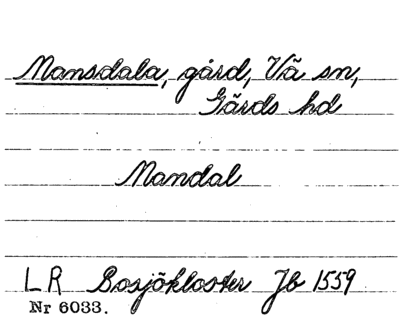 Mansdala, gård, Vä sn,
Gärds hd
Mandal
LR Bosjökloster Jb 1559
Nr 6033.